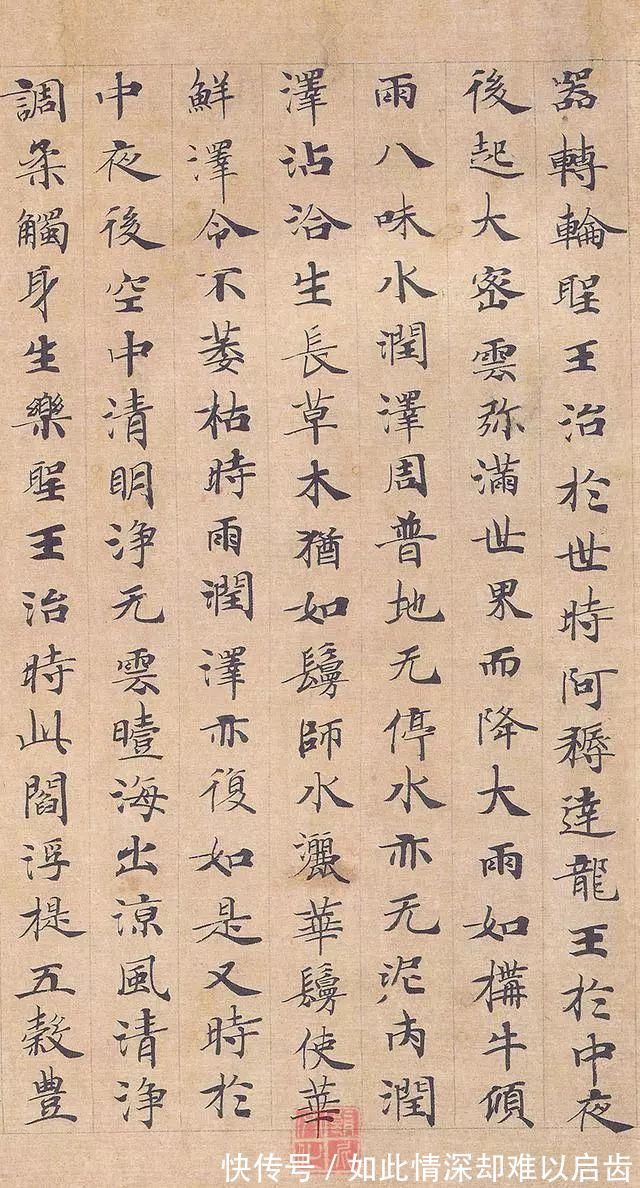 器轉輪聖王治於世時阿耨達龍王於中夜
後起大密雲弥滿世界而降大雨如構牛傾
雨八味水潤澤周普地无停水亦无泥內潤
澤沾洽生長草木猶如鬘師水灑華鬘使華
鮮澤令不萎枯時雨潤澤亦復如是又時於
中夜後空中清明淨无雲曀海出涼風清淨
調柔觸身生樂聖王治時此閻浮提五穀豊
快传号 / 如此情深却难以启齿